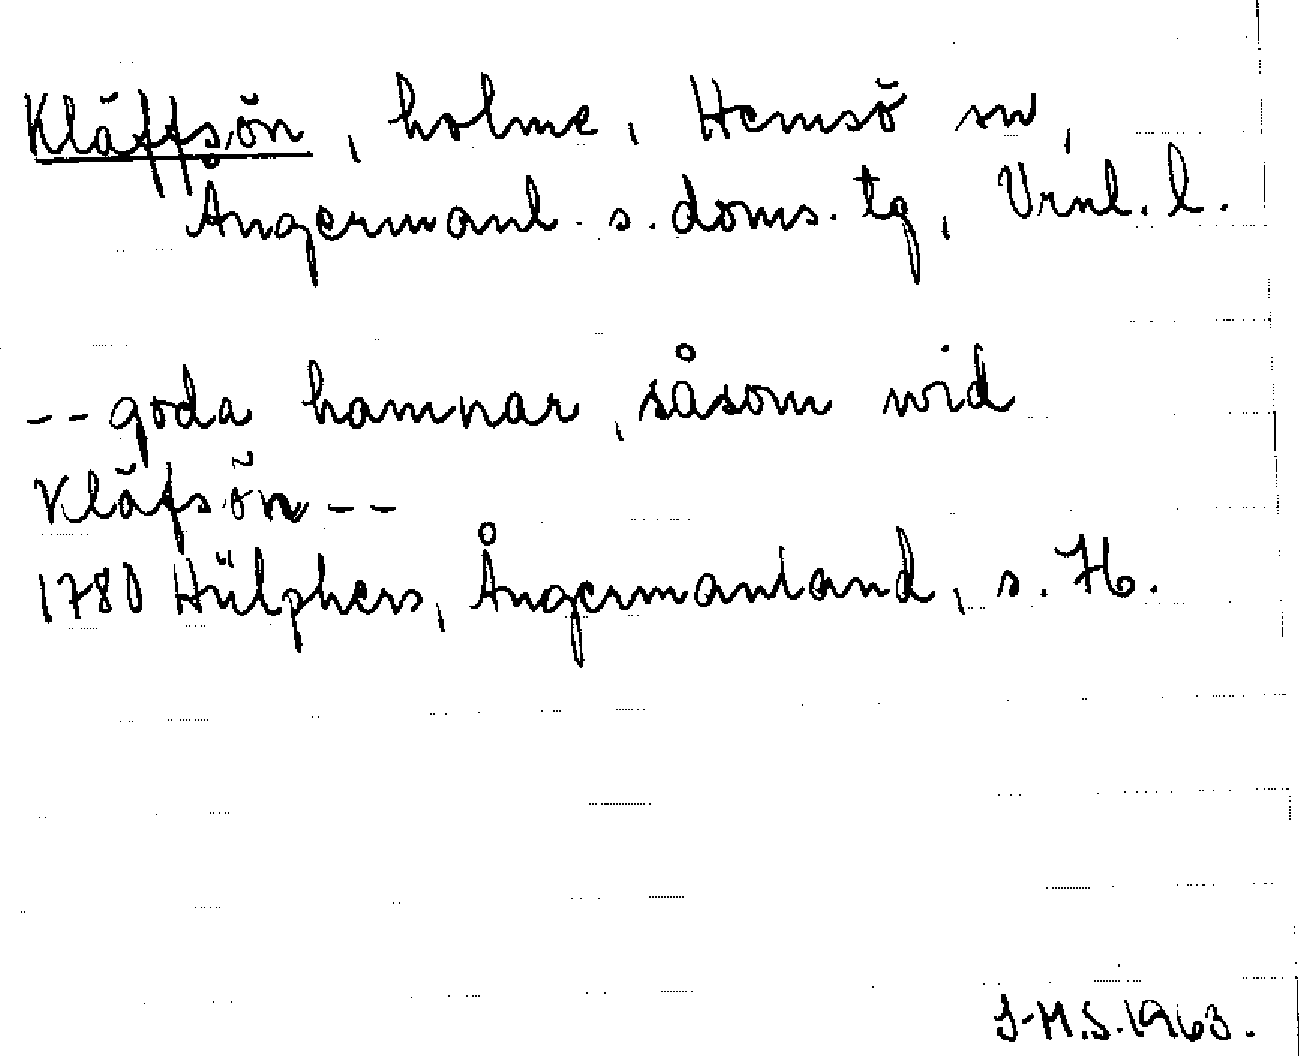 Kläffsön, holme, Hemsö sn,
Ångermanl. s. doms. tg, Vrnl. l.
-- goda hamnar, såsom wid
Kläfsön --
1780 Hülphers, Ångermanland, s. 76.
J-M.S. 1963.